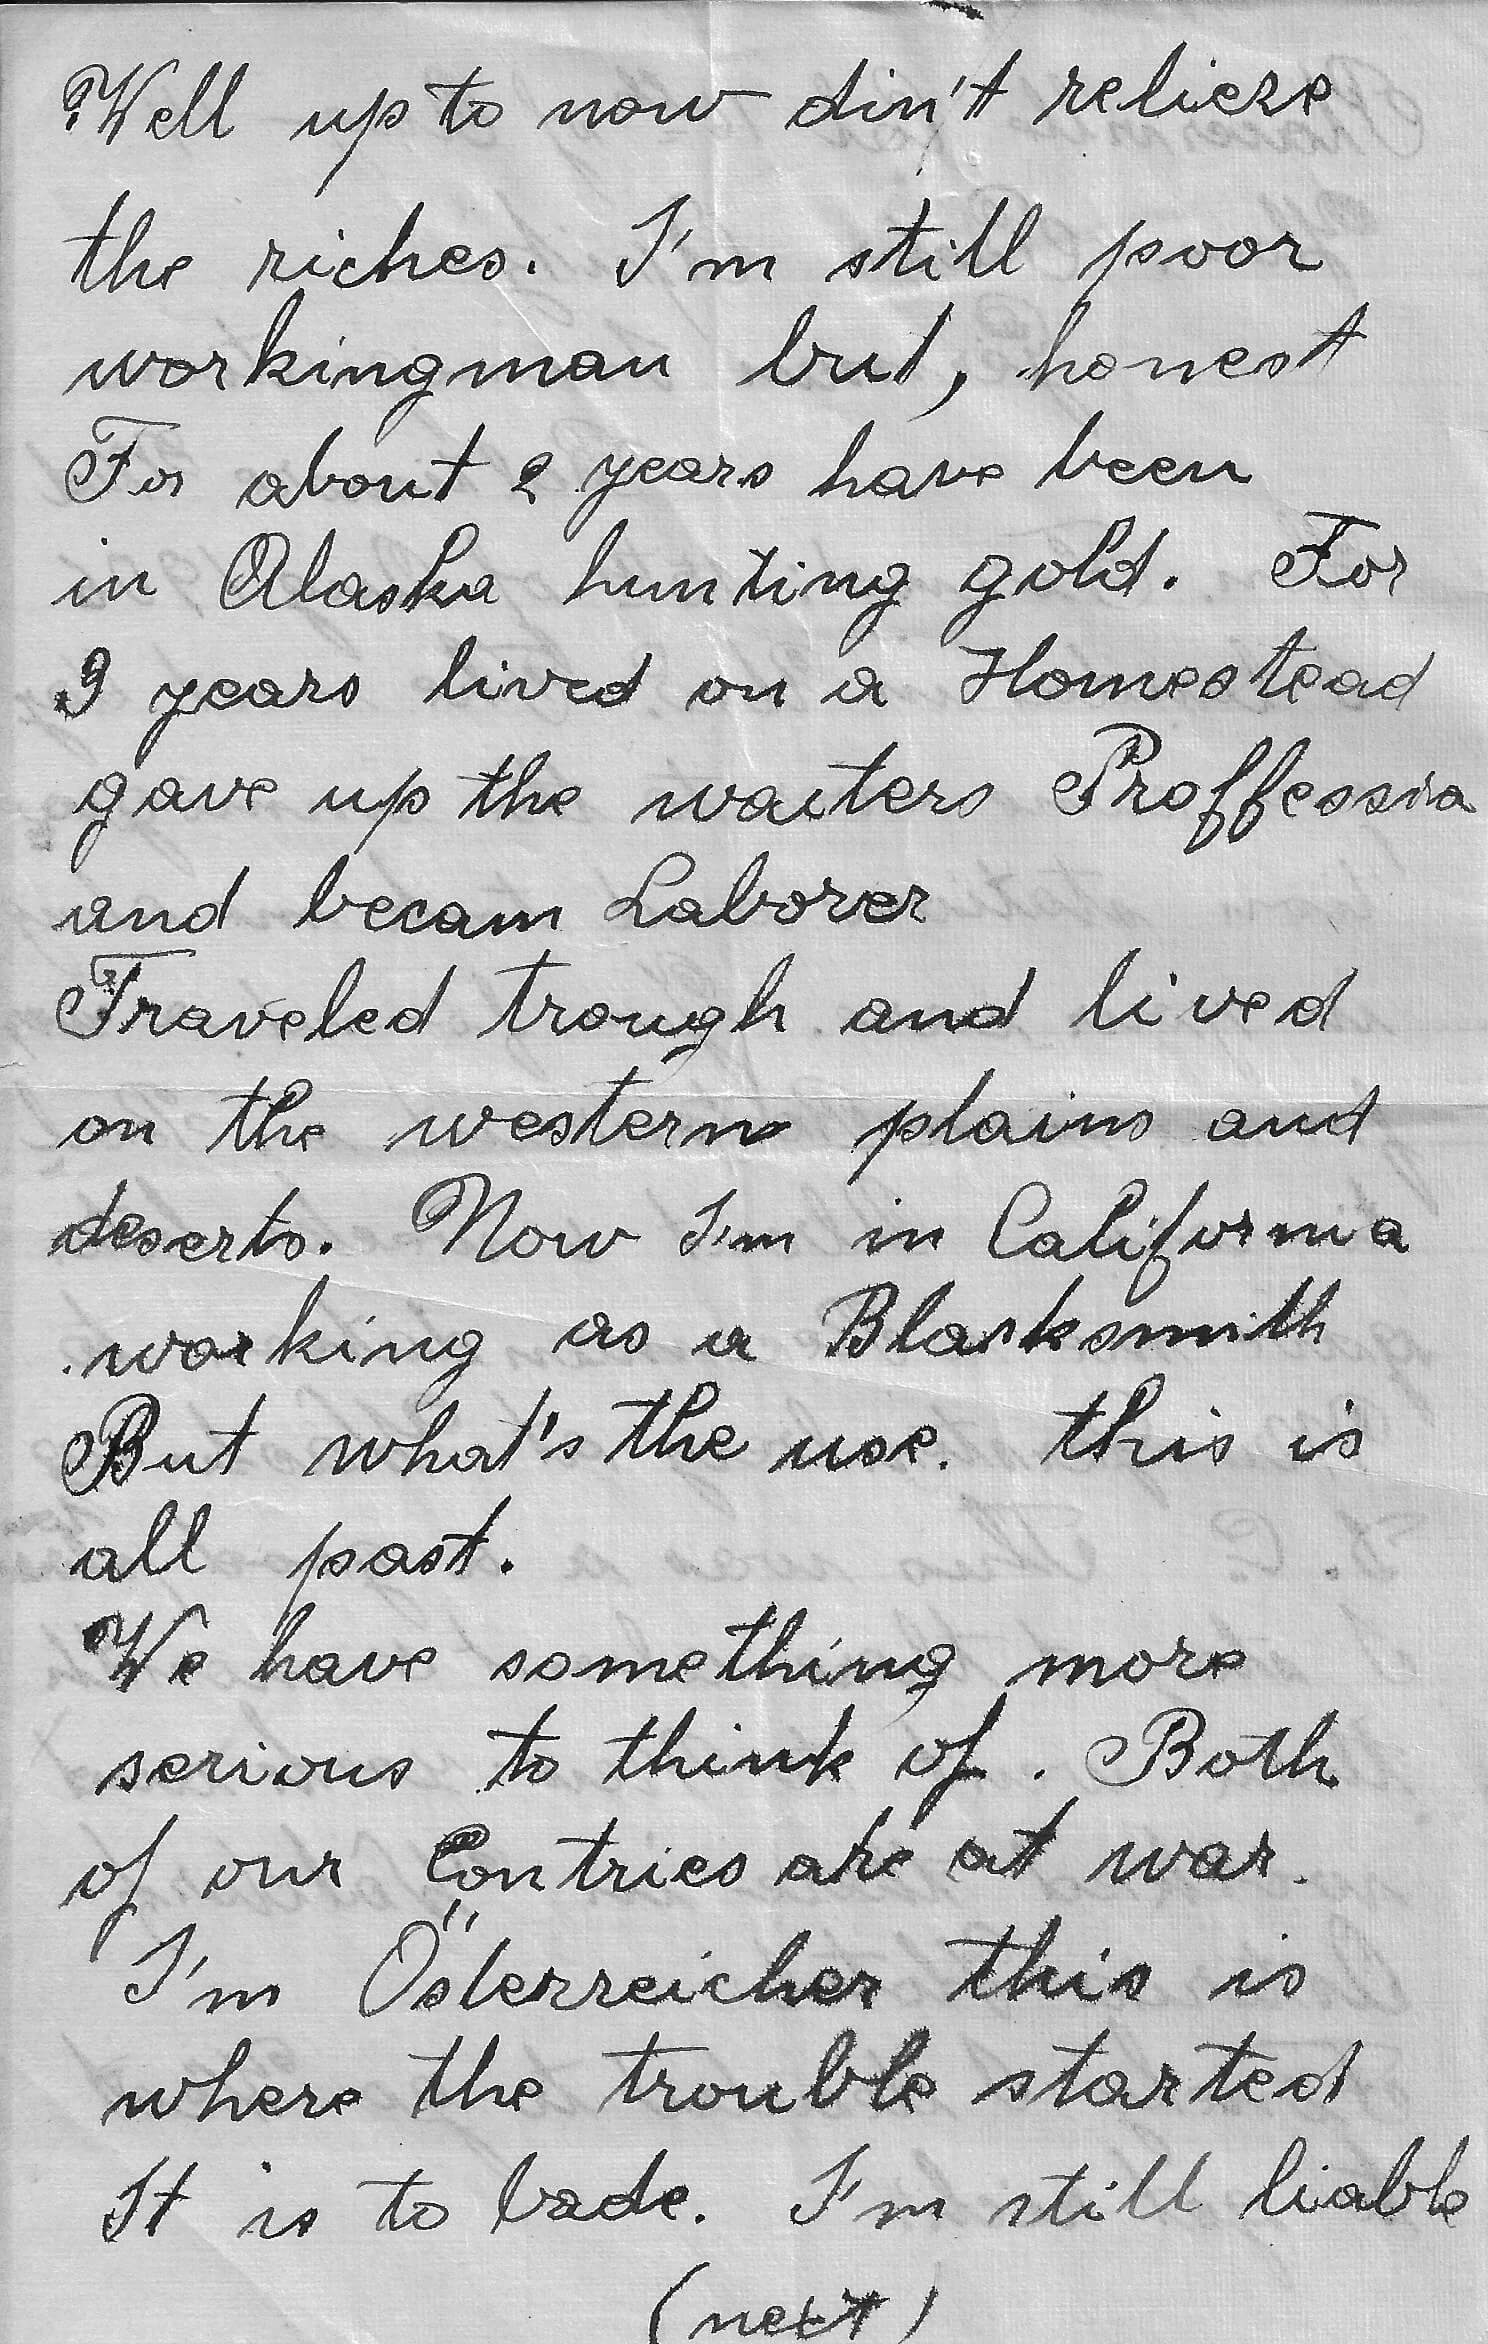 Well up to now din't relieze
the riches. I'm still poor
workingman but, honest
For about 2 years have been
in Alaska hunting gold. For
9 years lived on a Homestead
gave up the waiters Proffessio
and becam Laborer
Traveled trough and lived
on the western plains and
deserts. Now I'm in California
working as a Blacksmith
But what's the use. this is
all past.
We have something more
serious to think of. Both
of our Contries are at war.
I'm Österreicher this is
where the trouble started
It is to bade. I'm still liable
(next)